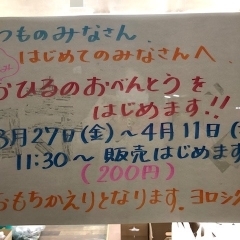 つものみなさん
はじめてのみなさんへ
おひるのおべんとうを
はじめます!!
3月27日(金)～4月11日(
11:30～ 販売はじめます
(200円)
おもちかえりとなります。ヨロシク